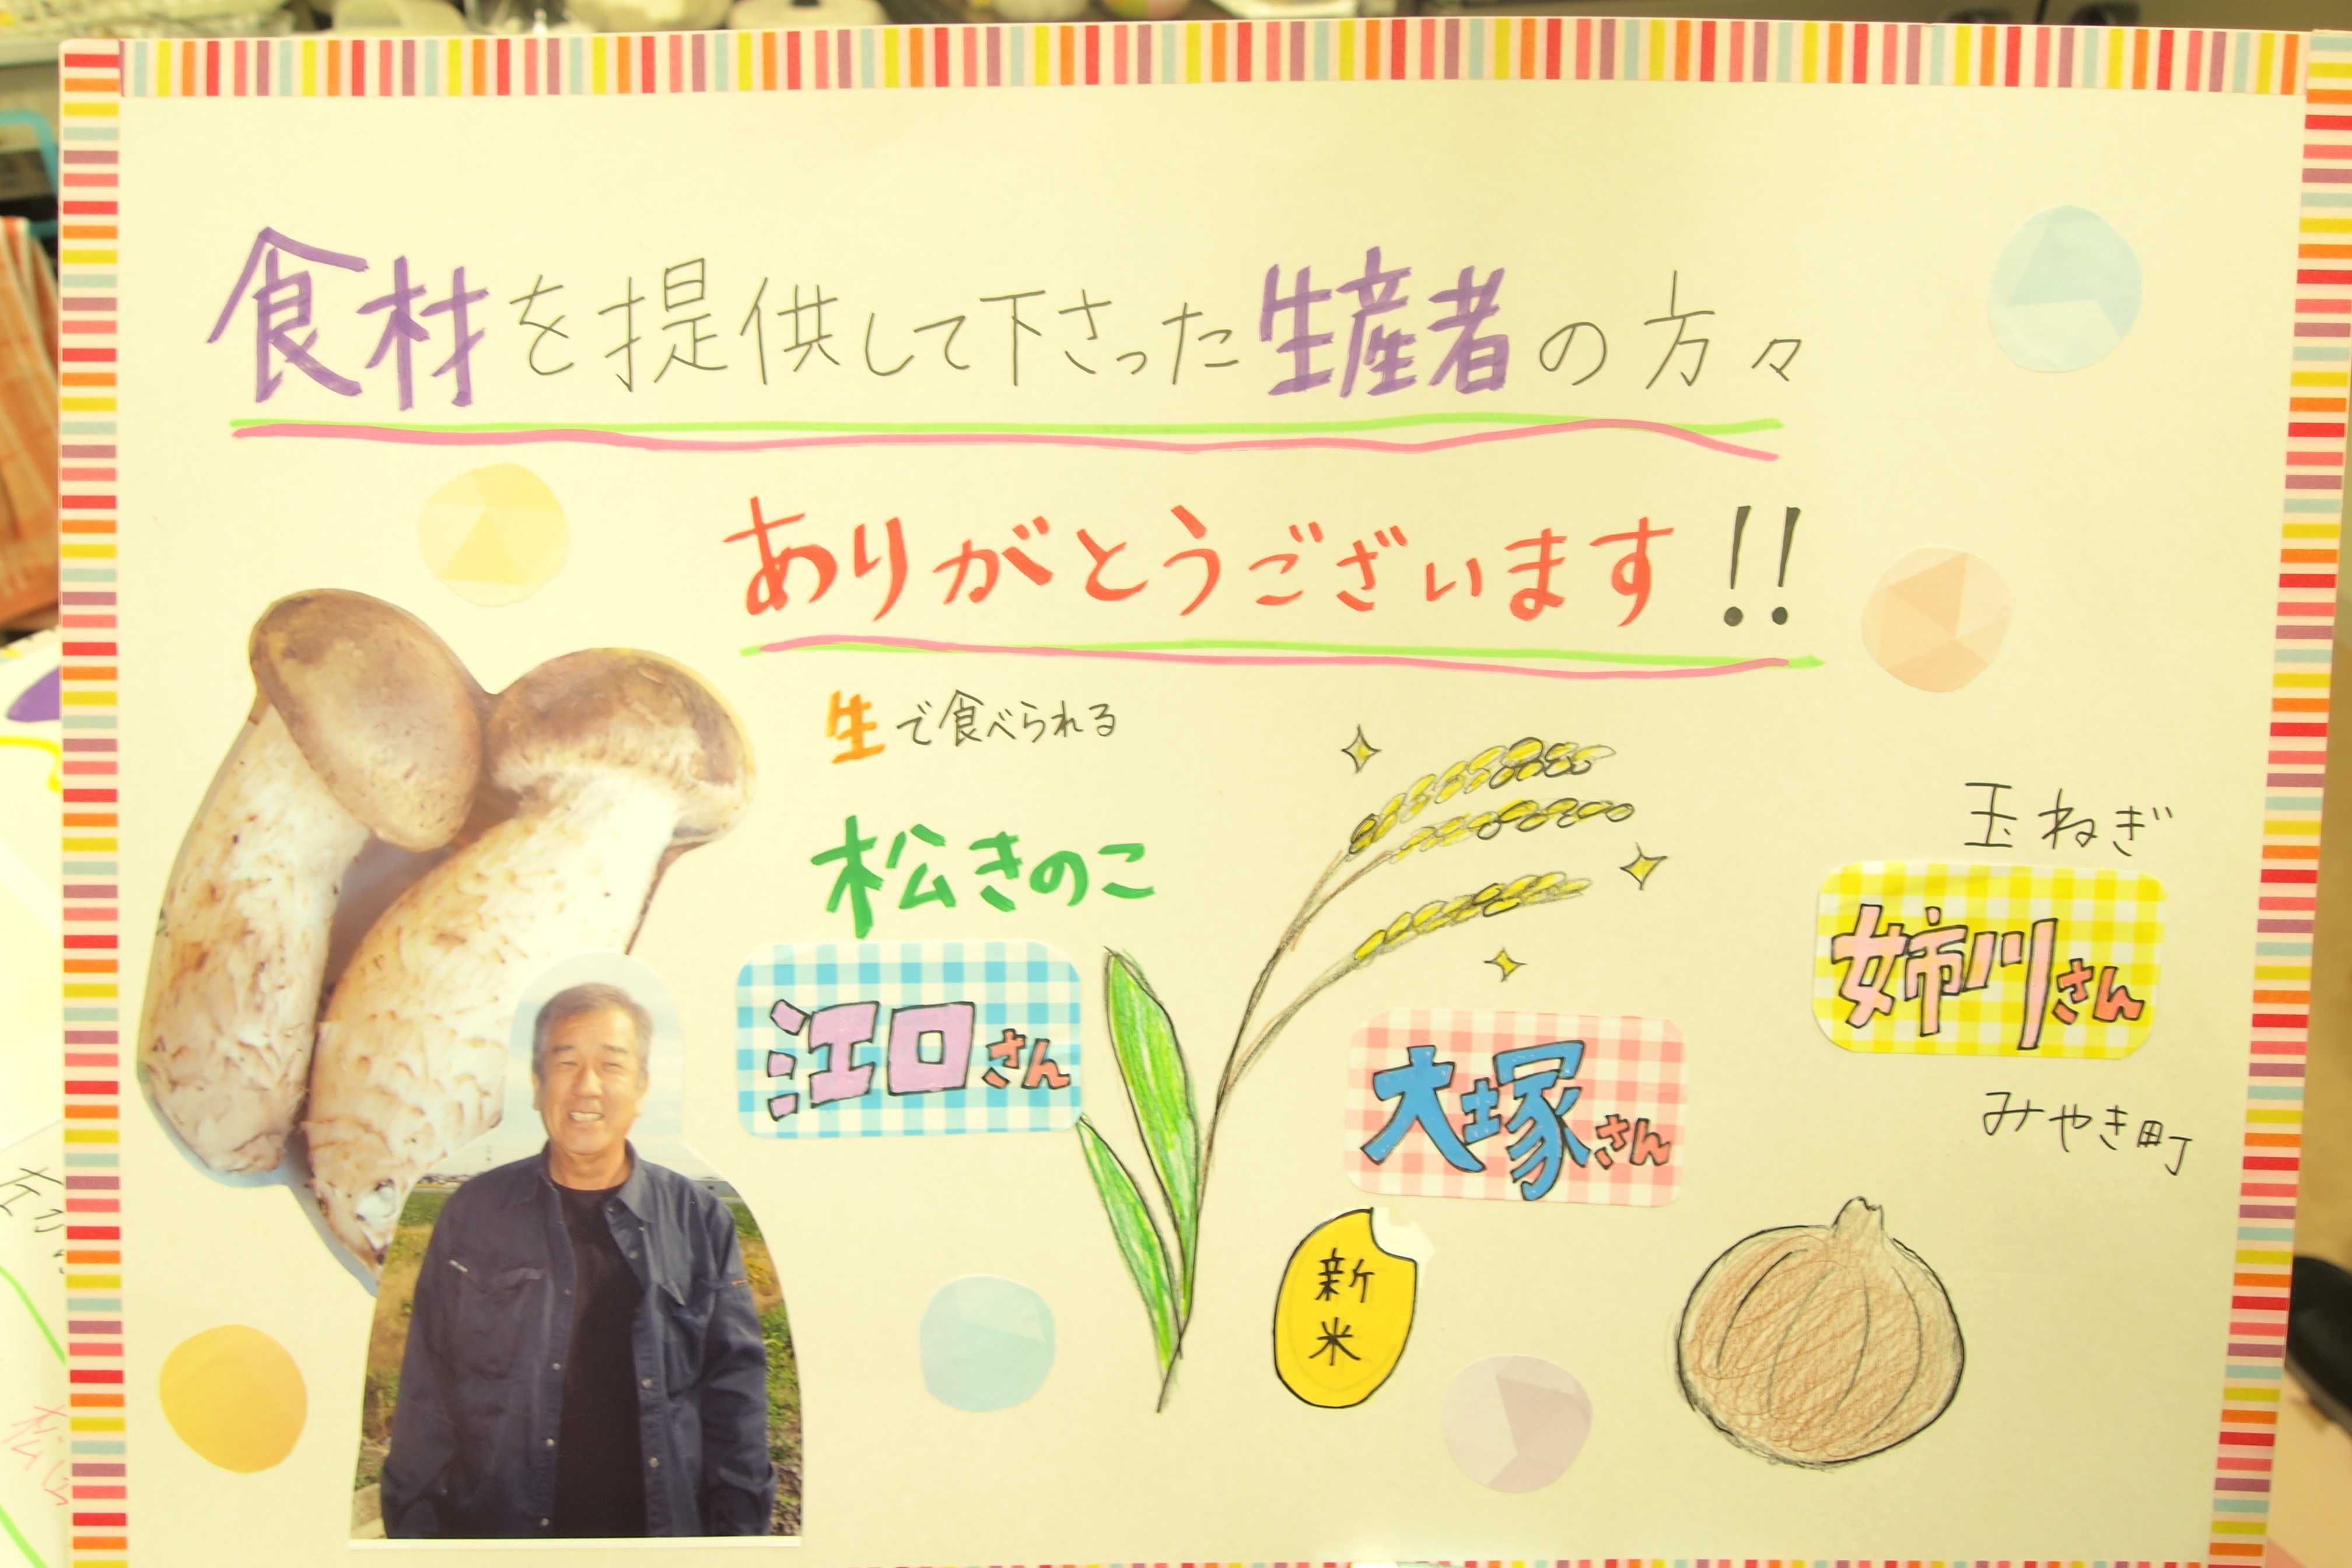 食材を提供して下さった生産者の方々
ありがとうございます!!
生で食べられる
松きのこ
江口さん
大塚さん
新米
玉ねぎ
姉川さん
みやき町